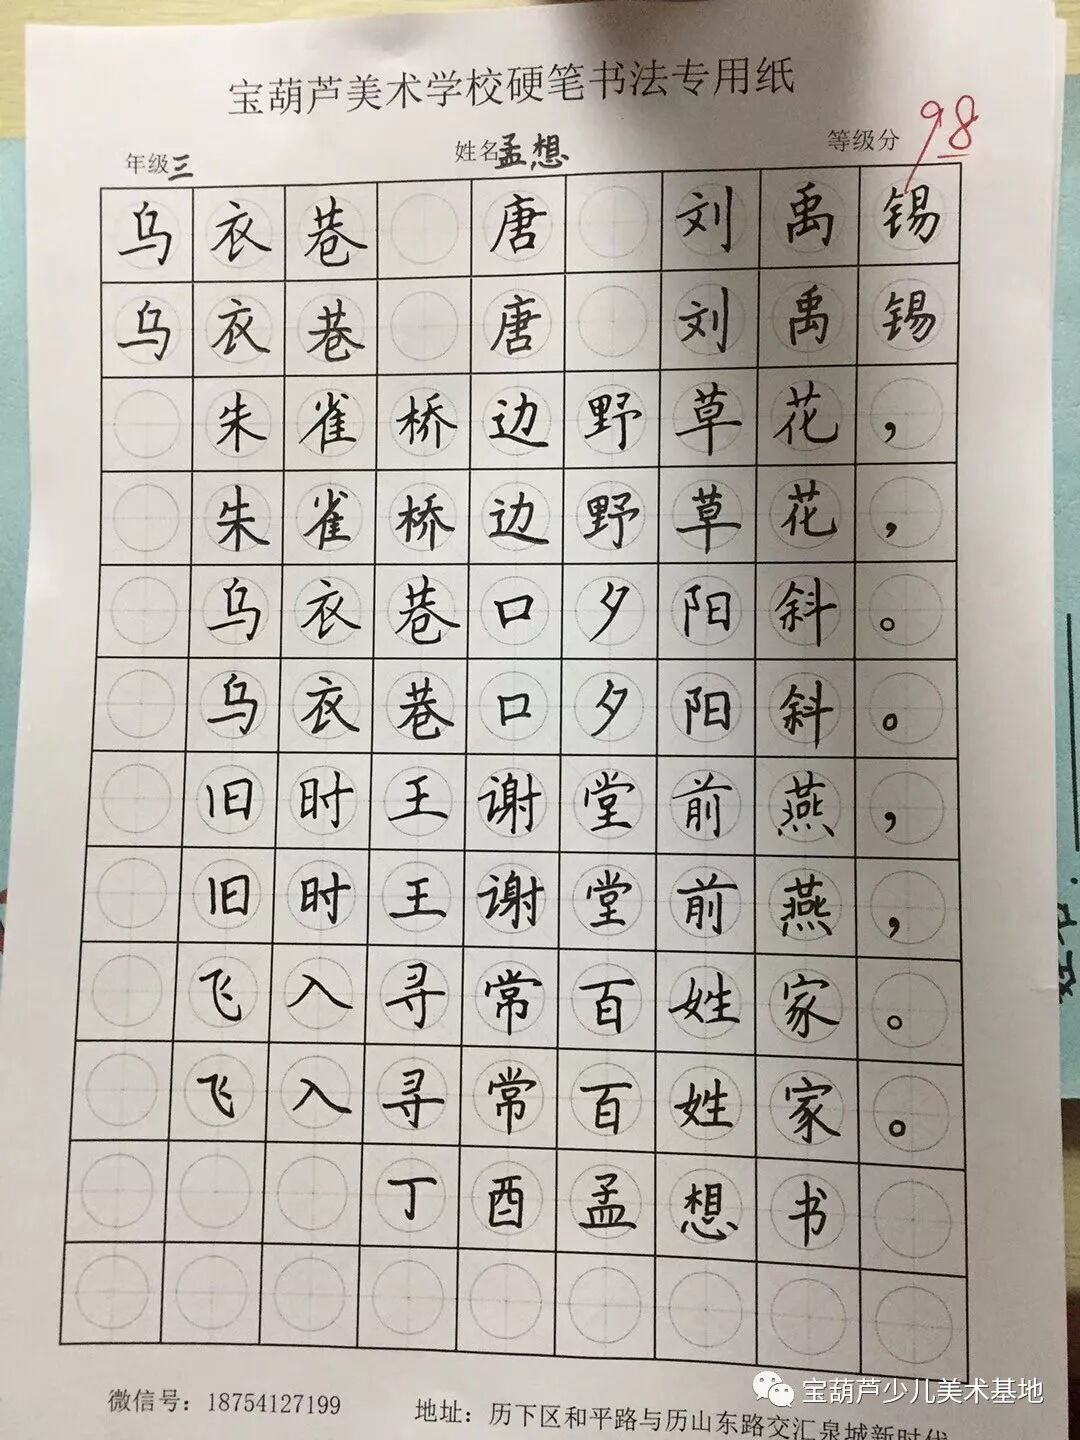 宝葫芦美术学校硬笔书法专用纸
年级三 姓名孟想 等级分 98
乌衣巷 唐 刘禹锡
乌衣巷 唐 刘禹锡
朱雀桥边野草花，
朱雀桥边野草花，
乌衣巷口夕阳斜。
乌衣巷口夕阳斜。
旧时王谢堂前燕，
旧时王谢堂前燕，
飞入寻常百姓家。
飞入寻常百姓家。
丁酉孟想书
微信号：18754127199 地址：历下区和平路与历山东路交汇泉城新时代
宝葫芦少儿美术基地